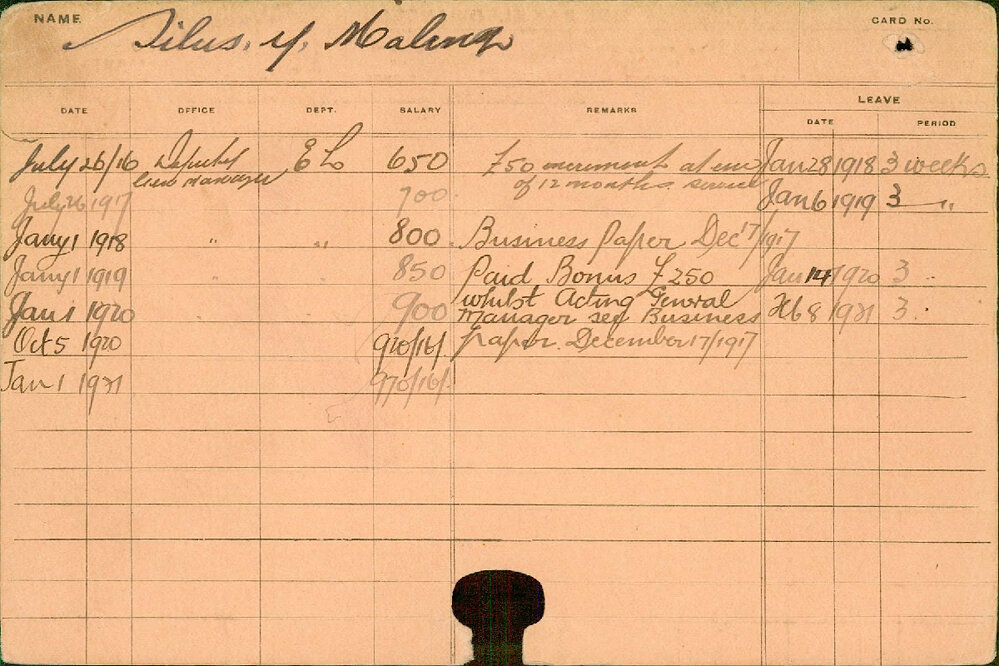 NAME
CARD No.
Silus. Y. Maling
DATE OFFICE DEPT. SALARY REMARKS LEAVE
DATE PERIOD
July 26/16 Deputy E L 650 £50 increment at end Jan 28 1918 3 weeks
Manager of 12 months service
July 26 1917 700 Jan 6 1919 3 "
Jany 1 1918 " " 800 Business Paper Dec 17/1917
Jany 1 1919 " " 850 Paid Bonus £250 Jan 14 1920 3 "
Jan 1 1920 " " 900 whilst Acting General
Manager see Business Feb 8 1921 3 "
Oct 5 1920 920/16/. Paper. December 17/1917
Jan 1 1921 970/16/.